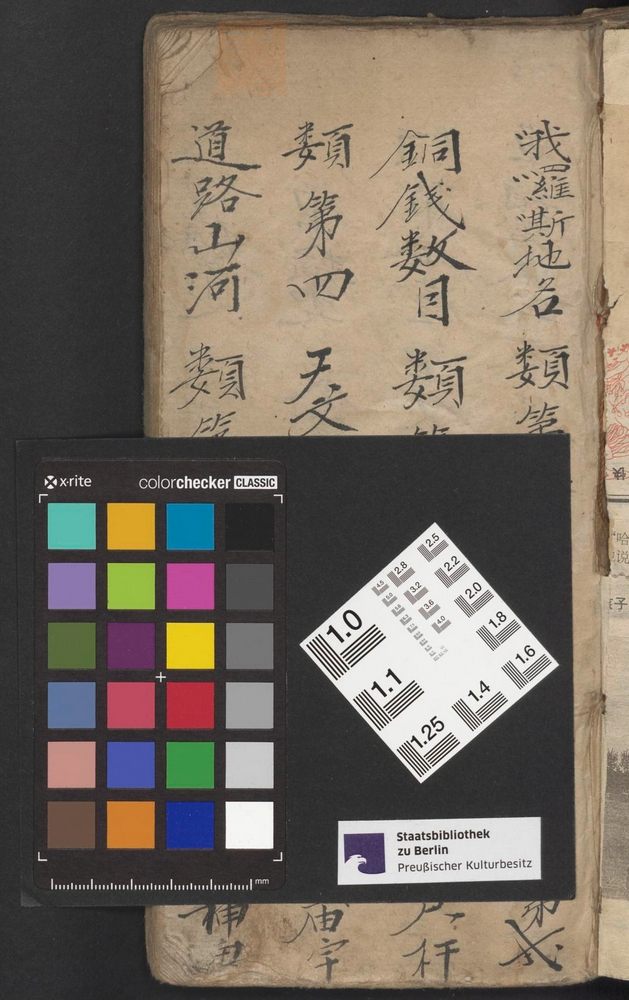 哦羅嘶地名 類 第
銅錢数目 類 第
類 第四 天文
道路山河 類 第
廟宇
x·rite colorchecker CLASSIC
mm
1.0 1.1 1.25 1.4 1.6 1.8 2.0 2.2 2.5
2.8 3.2 3.6 4.0 4.5
Staatsbibliothek
zu Berlin
Preußischer Kulturbesitz